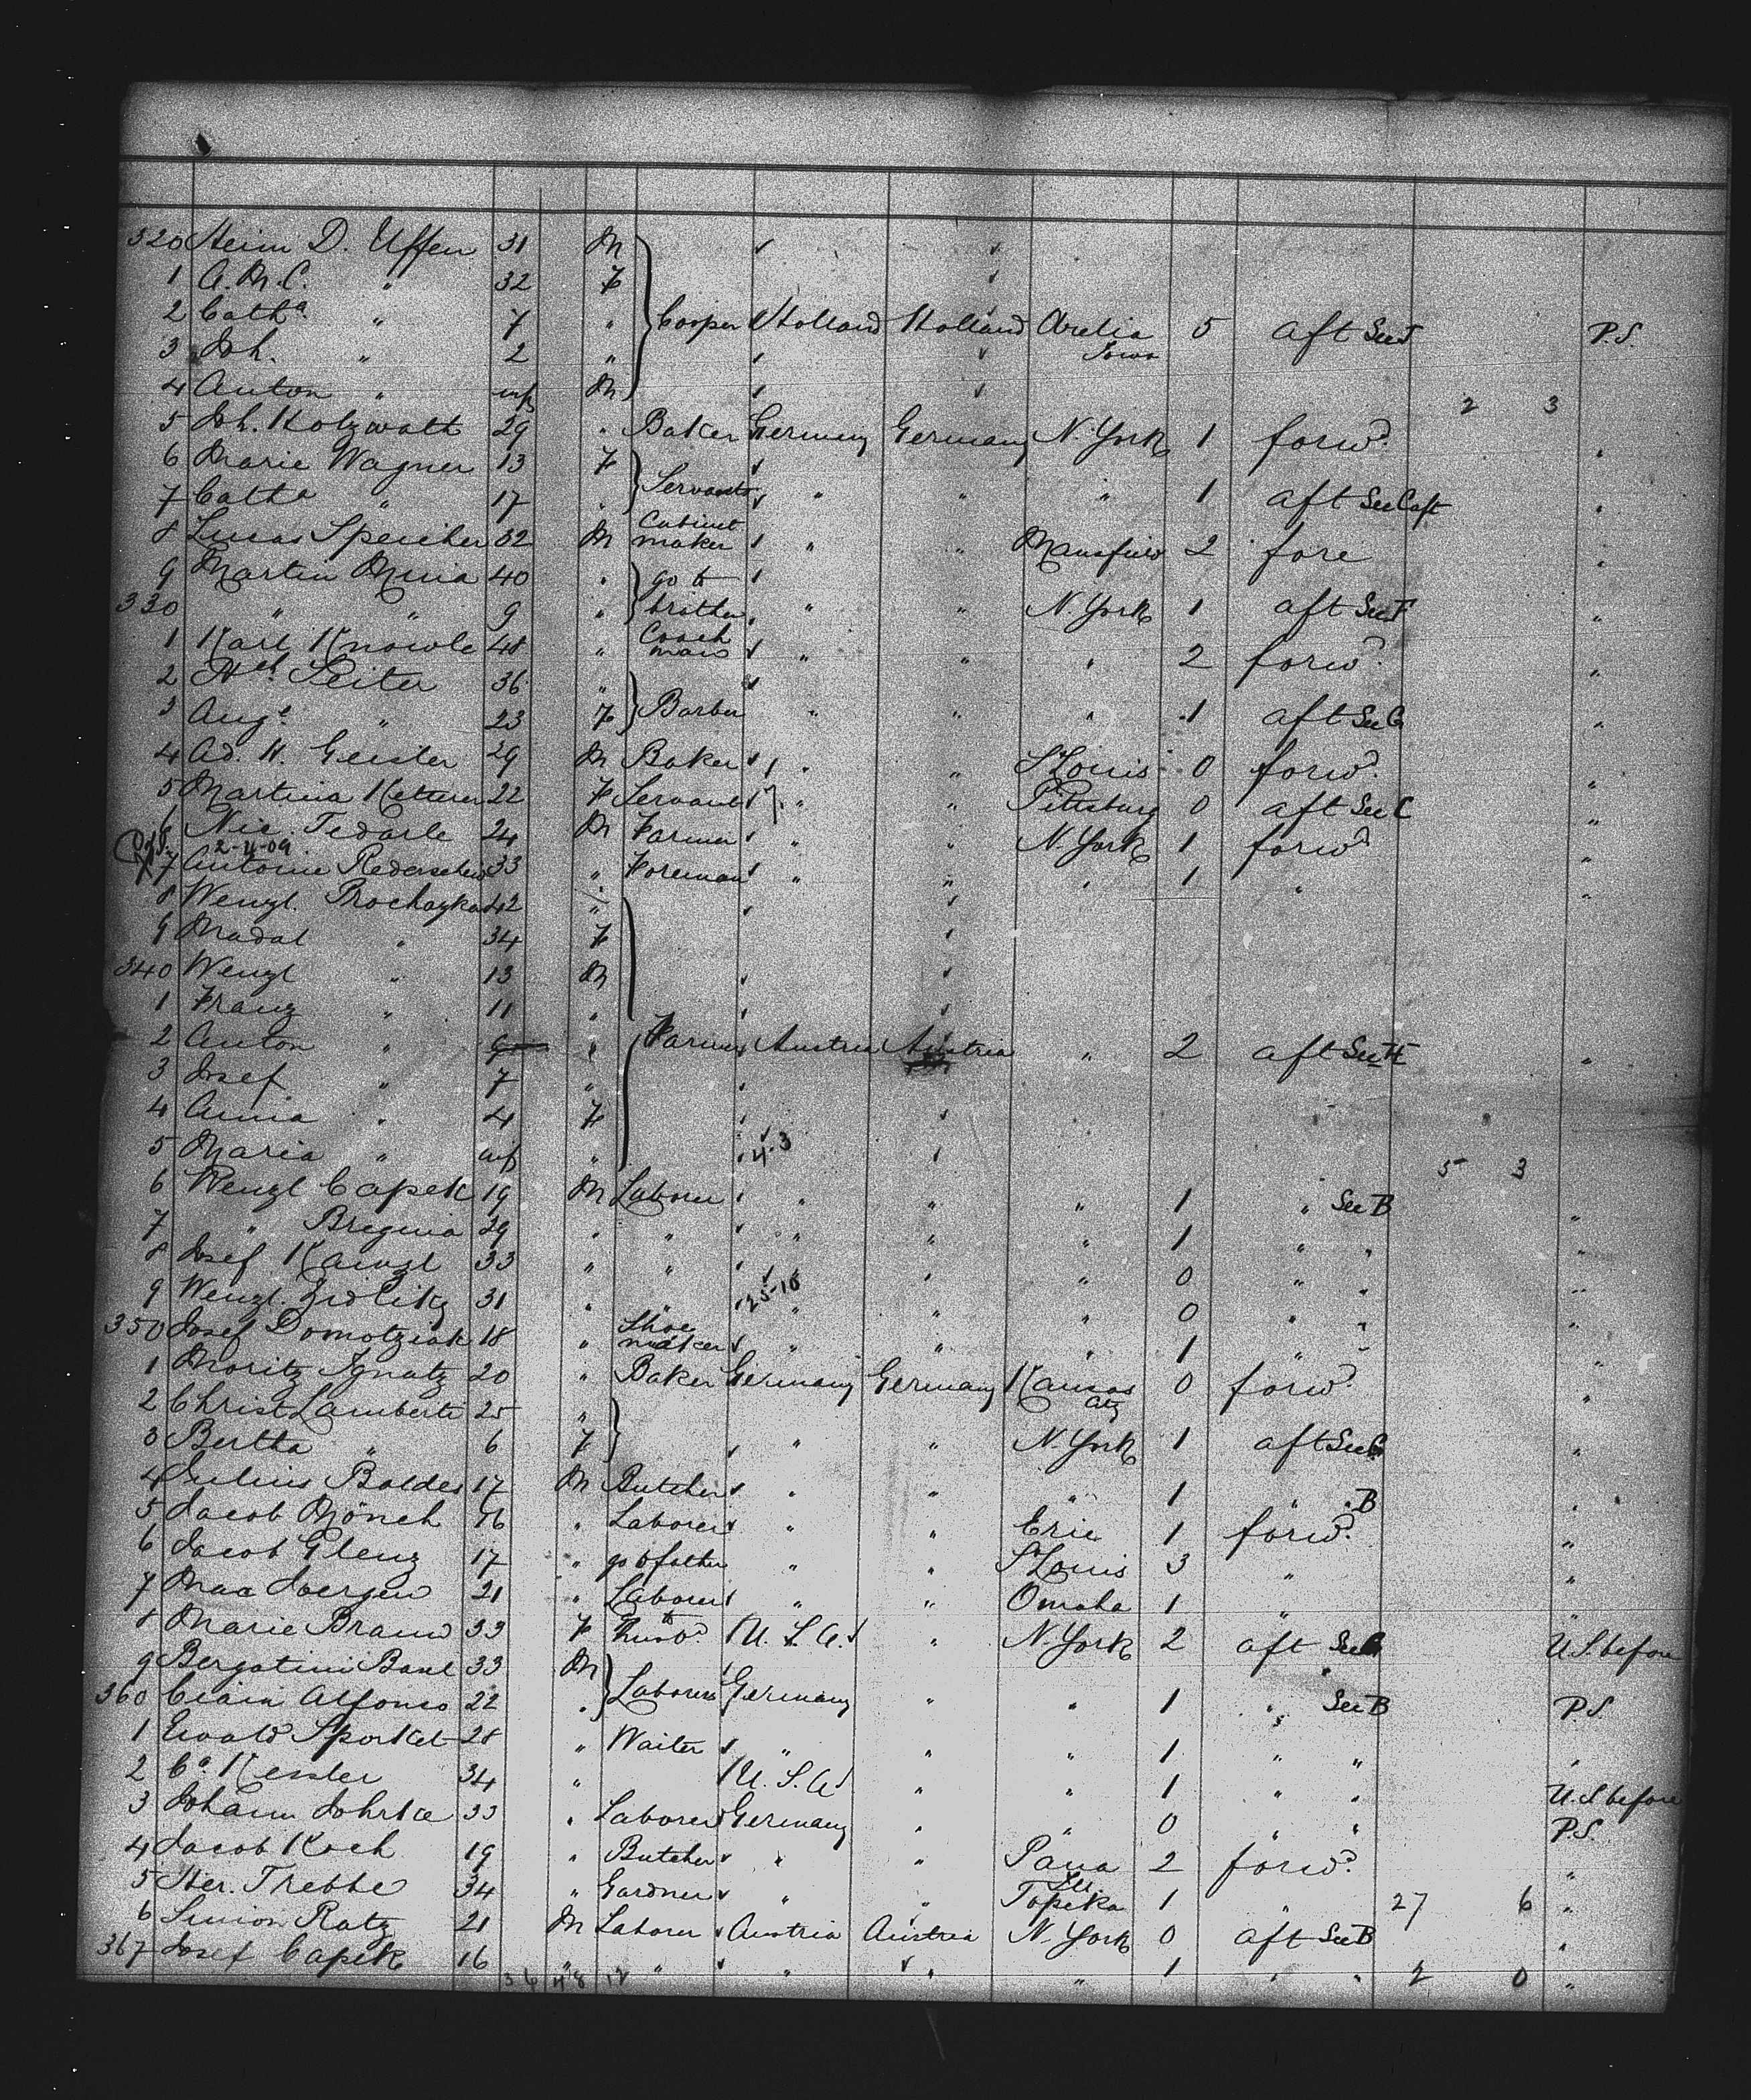 320 Heim D. Uffen 31 M
1 A. M. C. " 32 F
2 Catha " 7 " Cooper Holland Holland Aurelia Iowa 5 aft Sec J P.S.
3 Joh. " 2 "
4 Anton " inf M 2 3
5 Joh. Holzwath 29 " Baker Germany Germany N. York 1 forwd. "
6 Marie Wagner 13 F
7 Catha " 17 " Servants " " " 1 aft Sec C aft "
8 Lucas Speicher 32 M Cabinet maker " " Mansfield 2 fore "
9 Martin Muia 40 " go to
330 " " 9 " brother " " N. York 1 aft Sec F "
1 Karl Knowle 48 " Coach man " " " 2 forwd. "
2 Hch Seiter 36 "
3 Auge " 23 F Barber " " " 1 aft Sec G "
4 Ad. H. Geisler 29 M Baker " " St Louis 0 forwd. "
5 Martina Ketterer 22 F Servant " " Pittsburg 0 aft Sec C "
6 Nic. Tedarle 24 M Farmer " " N. York 1 forwd "
2-4-09
7 Antoine Rederscheid 33 " Foreman " " " 1 " "
8 Wenzl. Prochazka 42 "
9 Madal " 34 F
340 Wenzl " 13 M
1 Franz " 11 "
2 Anton " 9 " Farmer Austria Austria " 2 aft Sec H "
3 Josef " 7 "
4 Anna " 4 F
5 Maria " inf " 4-3 5 3
6 Wenzl Capek 19 M Laborer " " " 1 " Sec B "
7 " Bregina 29 " " " " " 1 " " "
8 Josef Kainzl 33 " " " " 0 " " "
9 Wenzl. Zidliky 31 " " 25-18 " " " 0 " " "
350 Josef Domotziak 18 " Shoe maker " " " 1 " " "
1 Moritz Ignatz 20 " Baker Germany Germany Kansas City 0 forwd. "
2 Christ Lamberti 25 "
3 Bertha " 6 F " " N. York 1 aft Sec G "
4 Julius Baldes 17 M Butcher " " " 1 " " B "
5 Jacob Mönch 16 " Laborer " " Erie 1 forwd. "
6 Jacob Glenz 17 " go to father " " St Louis 3 " "
7 Max Joergen 21 " Laborer " " Omaha 1 " "
8 Marie Braun 33 F to husbd. U. S. A. " N. York 2 aft Sec G U.S. before
9 Bergatini Banl 33 M
360 Ciain Alfonso 22 " Laborers Germany " " 1 " Sec B P.S.
1 Ewald Sporkel 28 " Waiter " " " 1 " " "
2 Ca Kessler 34 " U. S. A. " " 1 " " U.S before
3 Johann Johrka 33 " Laborer Germany " " 0 " " P.S.
4 Jacob Koch 19 " Butcher " " Pana Ill. 2 forwd. "
5 Her. Trebbe 34 " Gardner " " Topeka 1 " 27 6 "
6 Simon Ratz 21 M Laborer Austria Austria N. York 0 aft Sec B "
367 Josef Capek 16 " " " " " 1 " " 2 0 "
36 48 12